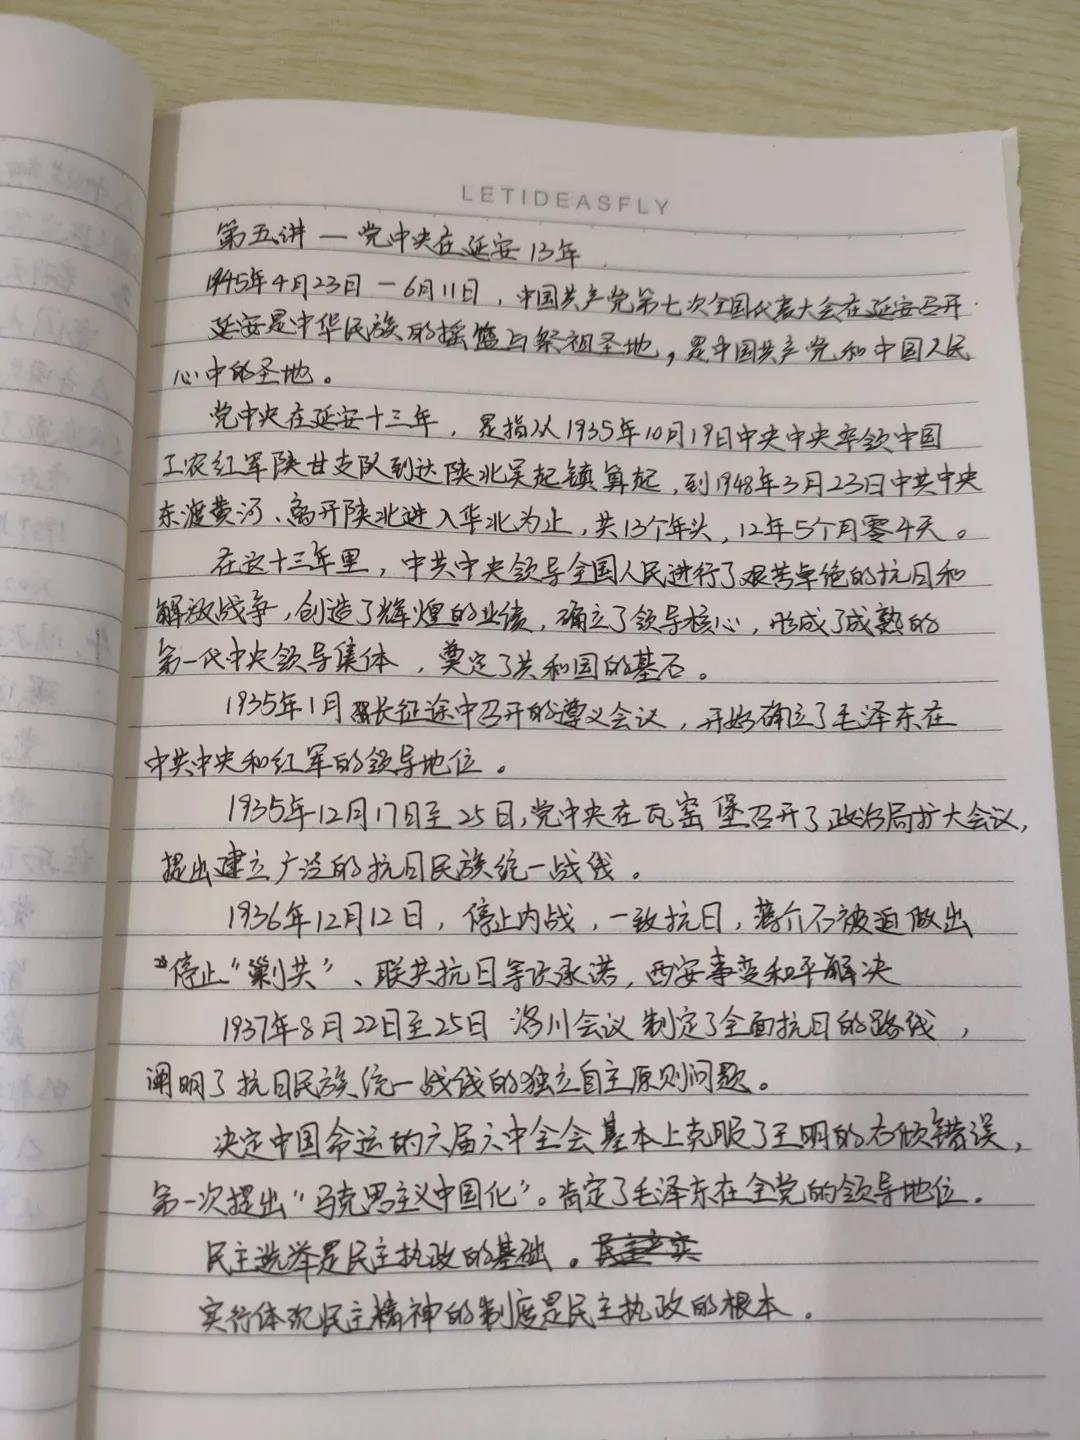 LETIDEASFLY
第五讲 — 党中央在延安13年
1945年4月23日 - 6月11日，中国共产党第七次全国代表大会在延安召开.
延安是中华民族的摇篮与祭祖圣地，是中国共产党和中国人民
心中的圣地。
党中央在延安十三年，是指从1935年10月19日中央中央率领中国
工农红军陕甘支队到达陕北吴起镇算起，到1948年3月23日中共中央
东渡黄河、离开陕北进入华北为止，共13个年头，12年5个月零4天。
在这十三年里，中共中央领导全国人民进行了艰苦卓绝的抗日和
解放战争，创造了辉煌的业绩，确立了领导核心，形成了成熟的
第一代中央领导集体，奠定了共和国的基石。
1935年1月 长征途中召开的遵义会议，开始确立了毛泽东在
中共中央和红军的领导地位。
1935年12月17日至25日，党中央在瓦窑堡召开了政治局扩大会议，
提出建立广泛的抗日民族统一战线。
1936年12月12日，停止内战，一致抗日，蒋介石被迫做出
停止“剿共”、联共抗日等次承诺，西安事变和平解决
1937年8月22日至25日 洛川会议 制定了全面抗日的路线，
阐明了抗日民族统一战线的独立自主原则问题。
决定中国命运的六届六中全会基本上克服了王明的右倾错误，
第一次提出“马克思主义中国化”。肯定了毛泽东在全党的领导地位.
民主选举是民主执政的基础。
实行体现民主精神的制度是民主执政的根本。